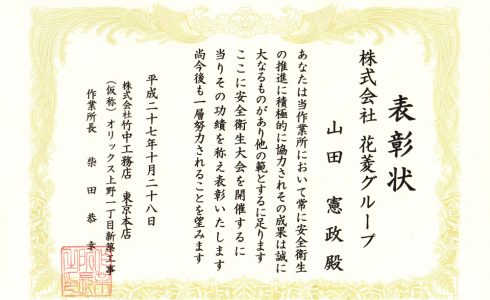 表彰状
株式会社 花菱グループ
山田 憲政 殿
あなたは当作業所において常に安全衛生
の推進に積極的に協力されその成果は誠に
大なるものがあり他の範とするに足ります
ここに安全衛生大会を開催するに
当りその功績を称え表彰いたします
尚今後も一層努力されることを望みます
平成二十七年十月二十八日
株式会社 竹中工務店 東京本店
(仮称)オリックス上野一丁目新築工事
作業所長 柴田 恭幸